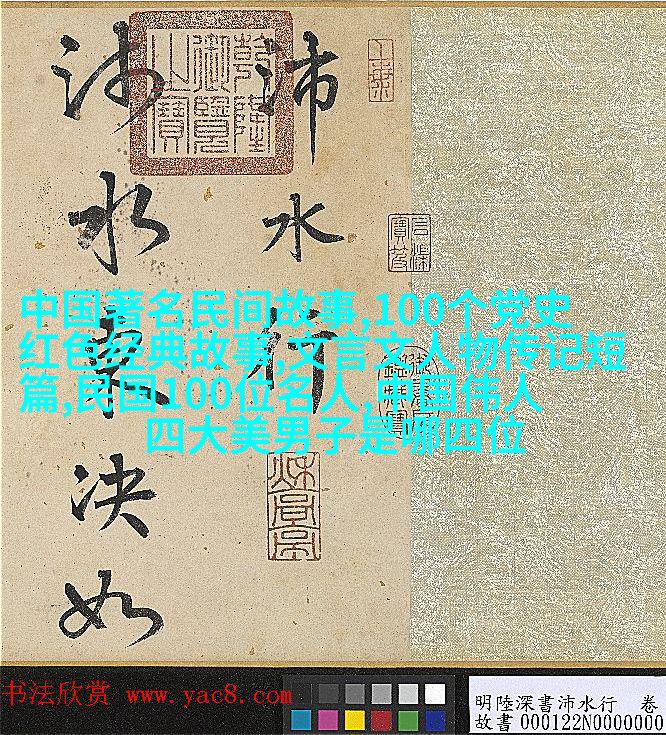 沛水行
乾隆御覽之寶
石渠寶笈
沛水東決如
中国著名民间故事,100个党史
红色经典故事,文言文人物传记短
篇,民国100位名人,中国伟人
四大美男子是哪四位
书法欣赏 www.yac8.com
明陸深書沛水行 卷
故書000122N0000000